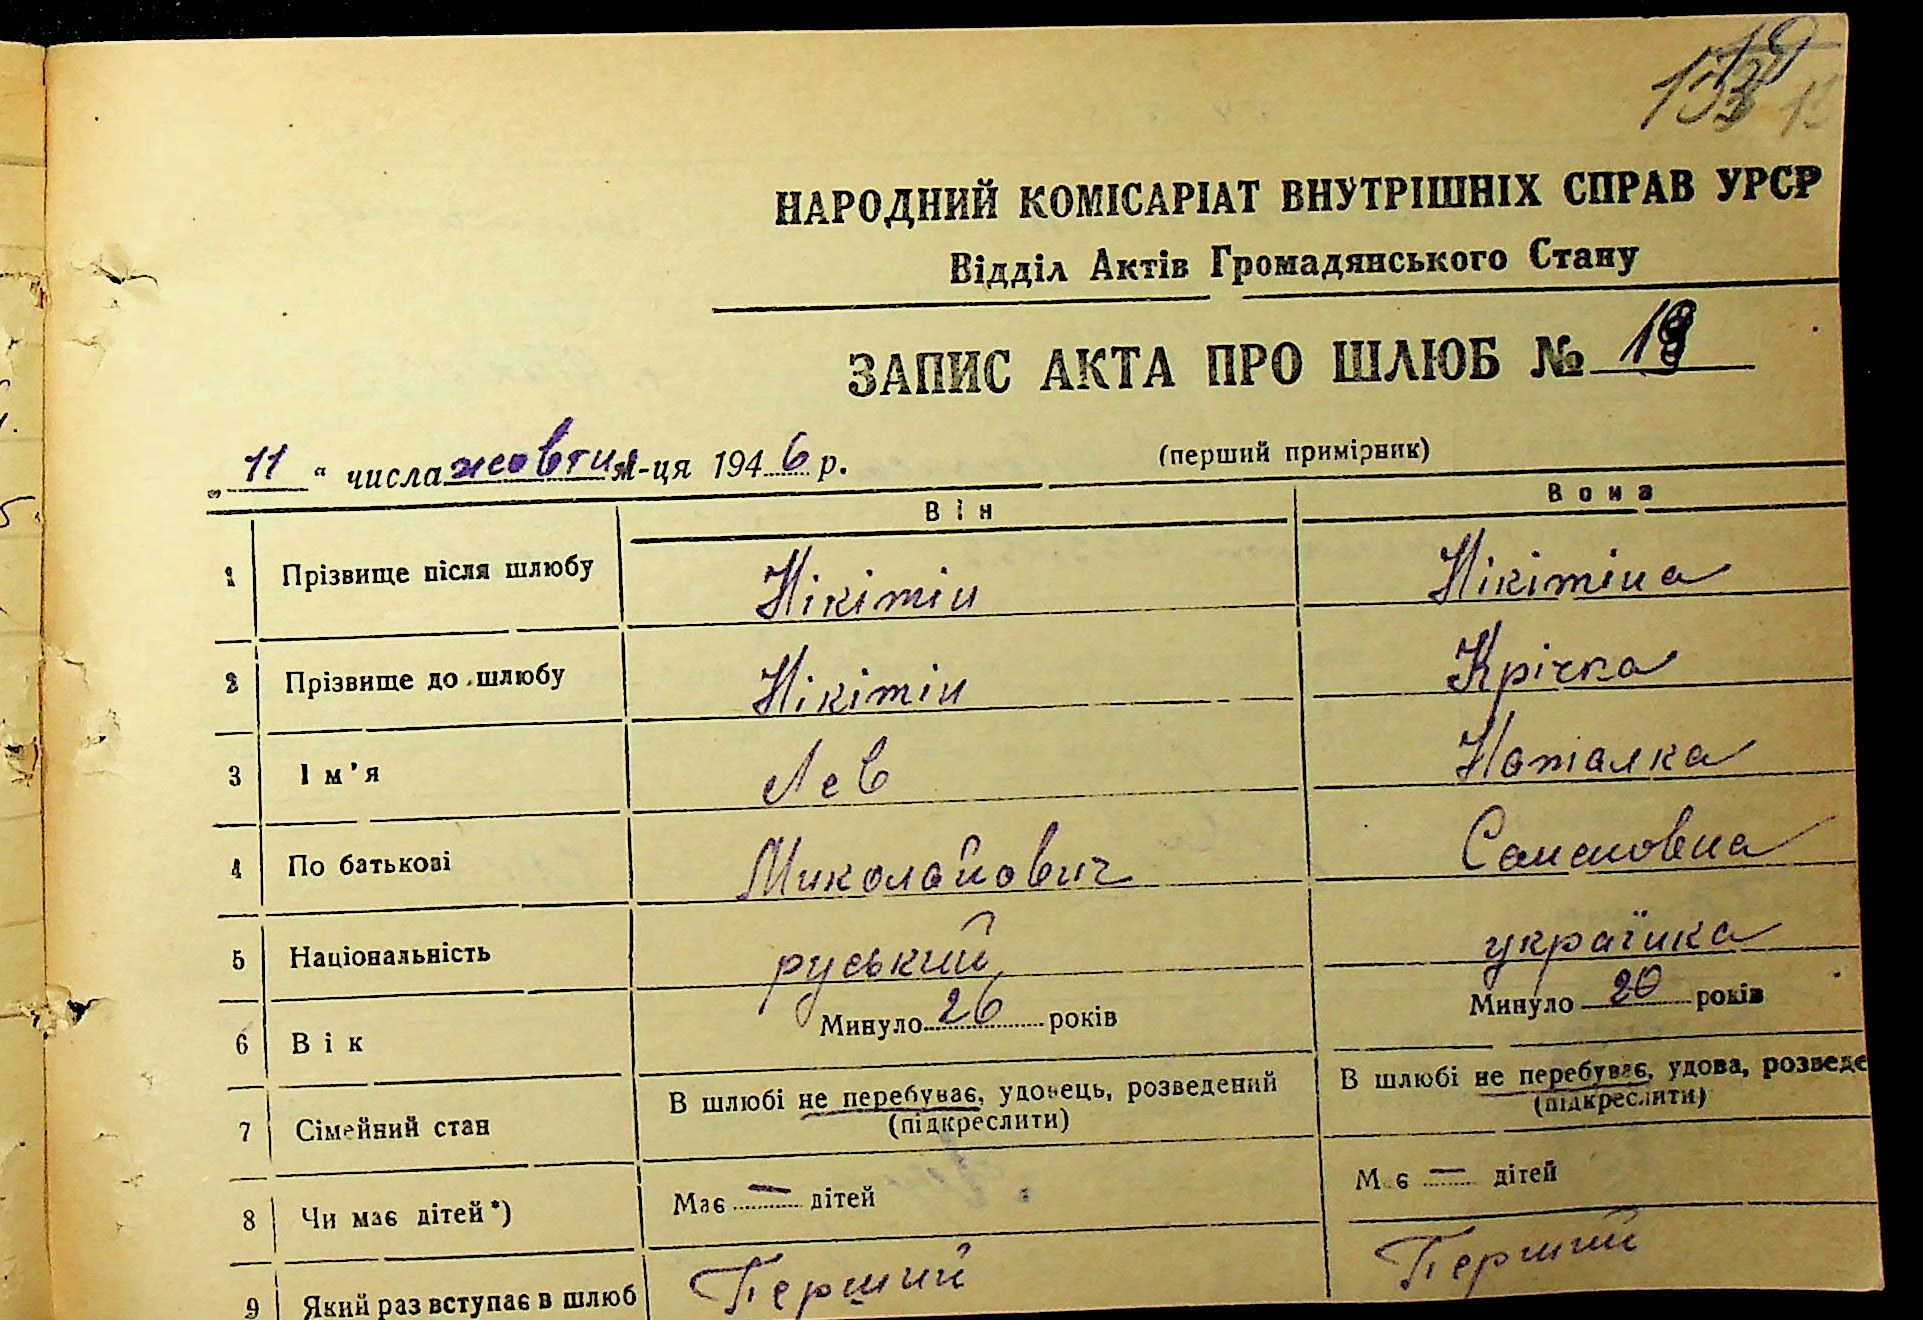 НАРОДНИЙ КОМІСАРІАТ ВНУТРІШНІХ СПРАВ УРСР
Відділ Актів Громадянського Стану
ЗАПИС АКТА ПРО ШЛЮБ №
„ 11 “ числа жовтня м-ця 1946 р. (перший примірник)
Він Вона
1 Прізвище після шлюбу Нікітін Нікітіна
2 Прізвище до шлюбу Нікітін Крічка
3 Ім'я Лев Наталка
4 По батькові Миколайович Семеновна
5 Національність руський українка
6 Вік Минуло 26 років Минуло 20 років
7 Сімейний стан В шлюбі не перебуває, удовець, розведений В шлюбі не перебуває, удова, розведе
(підкреслити) (підкреслити)
8 Чи має дітей*) Має — дітей Має — дітей
9 Який раз вступає в шлюб Перший Перший